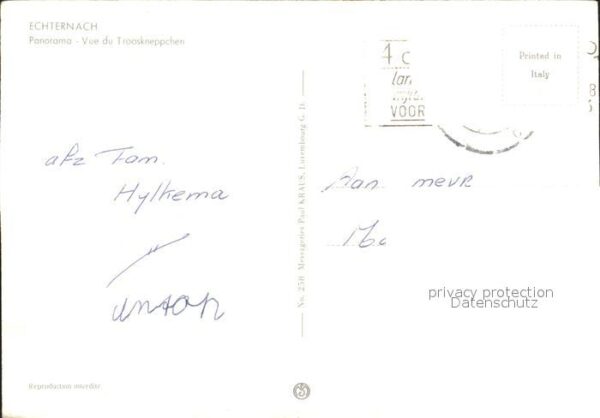 ECHTERNACH
Panorama - Vue du Trooskneppchen
Printed in
Italy
VOOR
afz Fam.
Hylkema
Aan mevr
No. 258 Messageries Paul KRAUS, Luxembourg G. D.
privacy protection
Datenschutz
Reproduction interdite